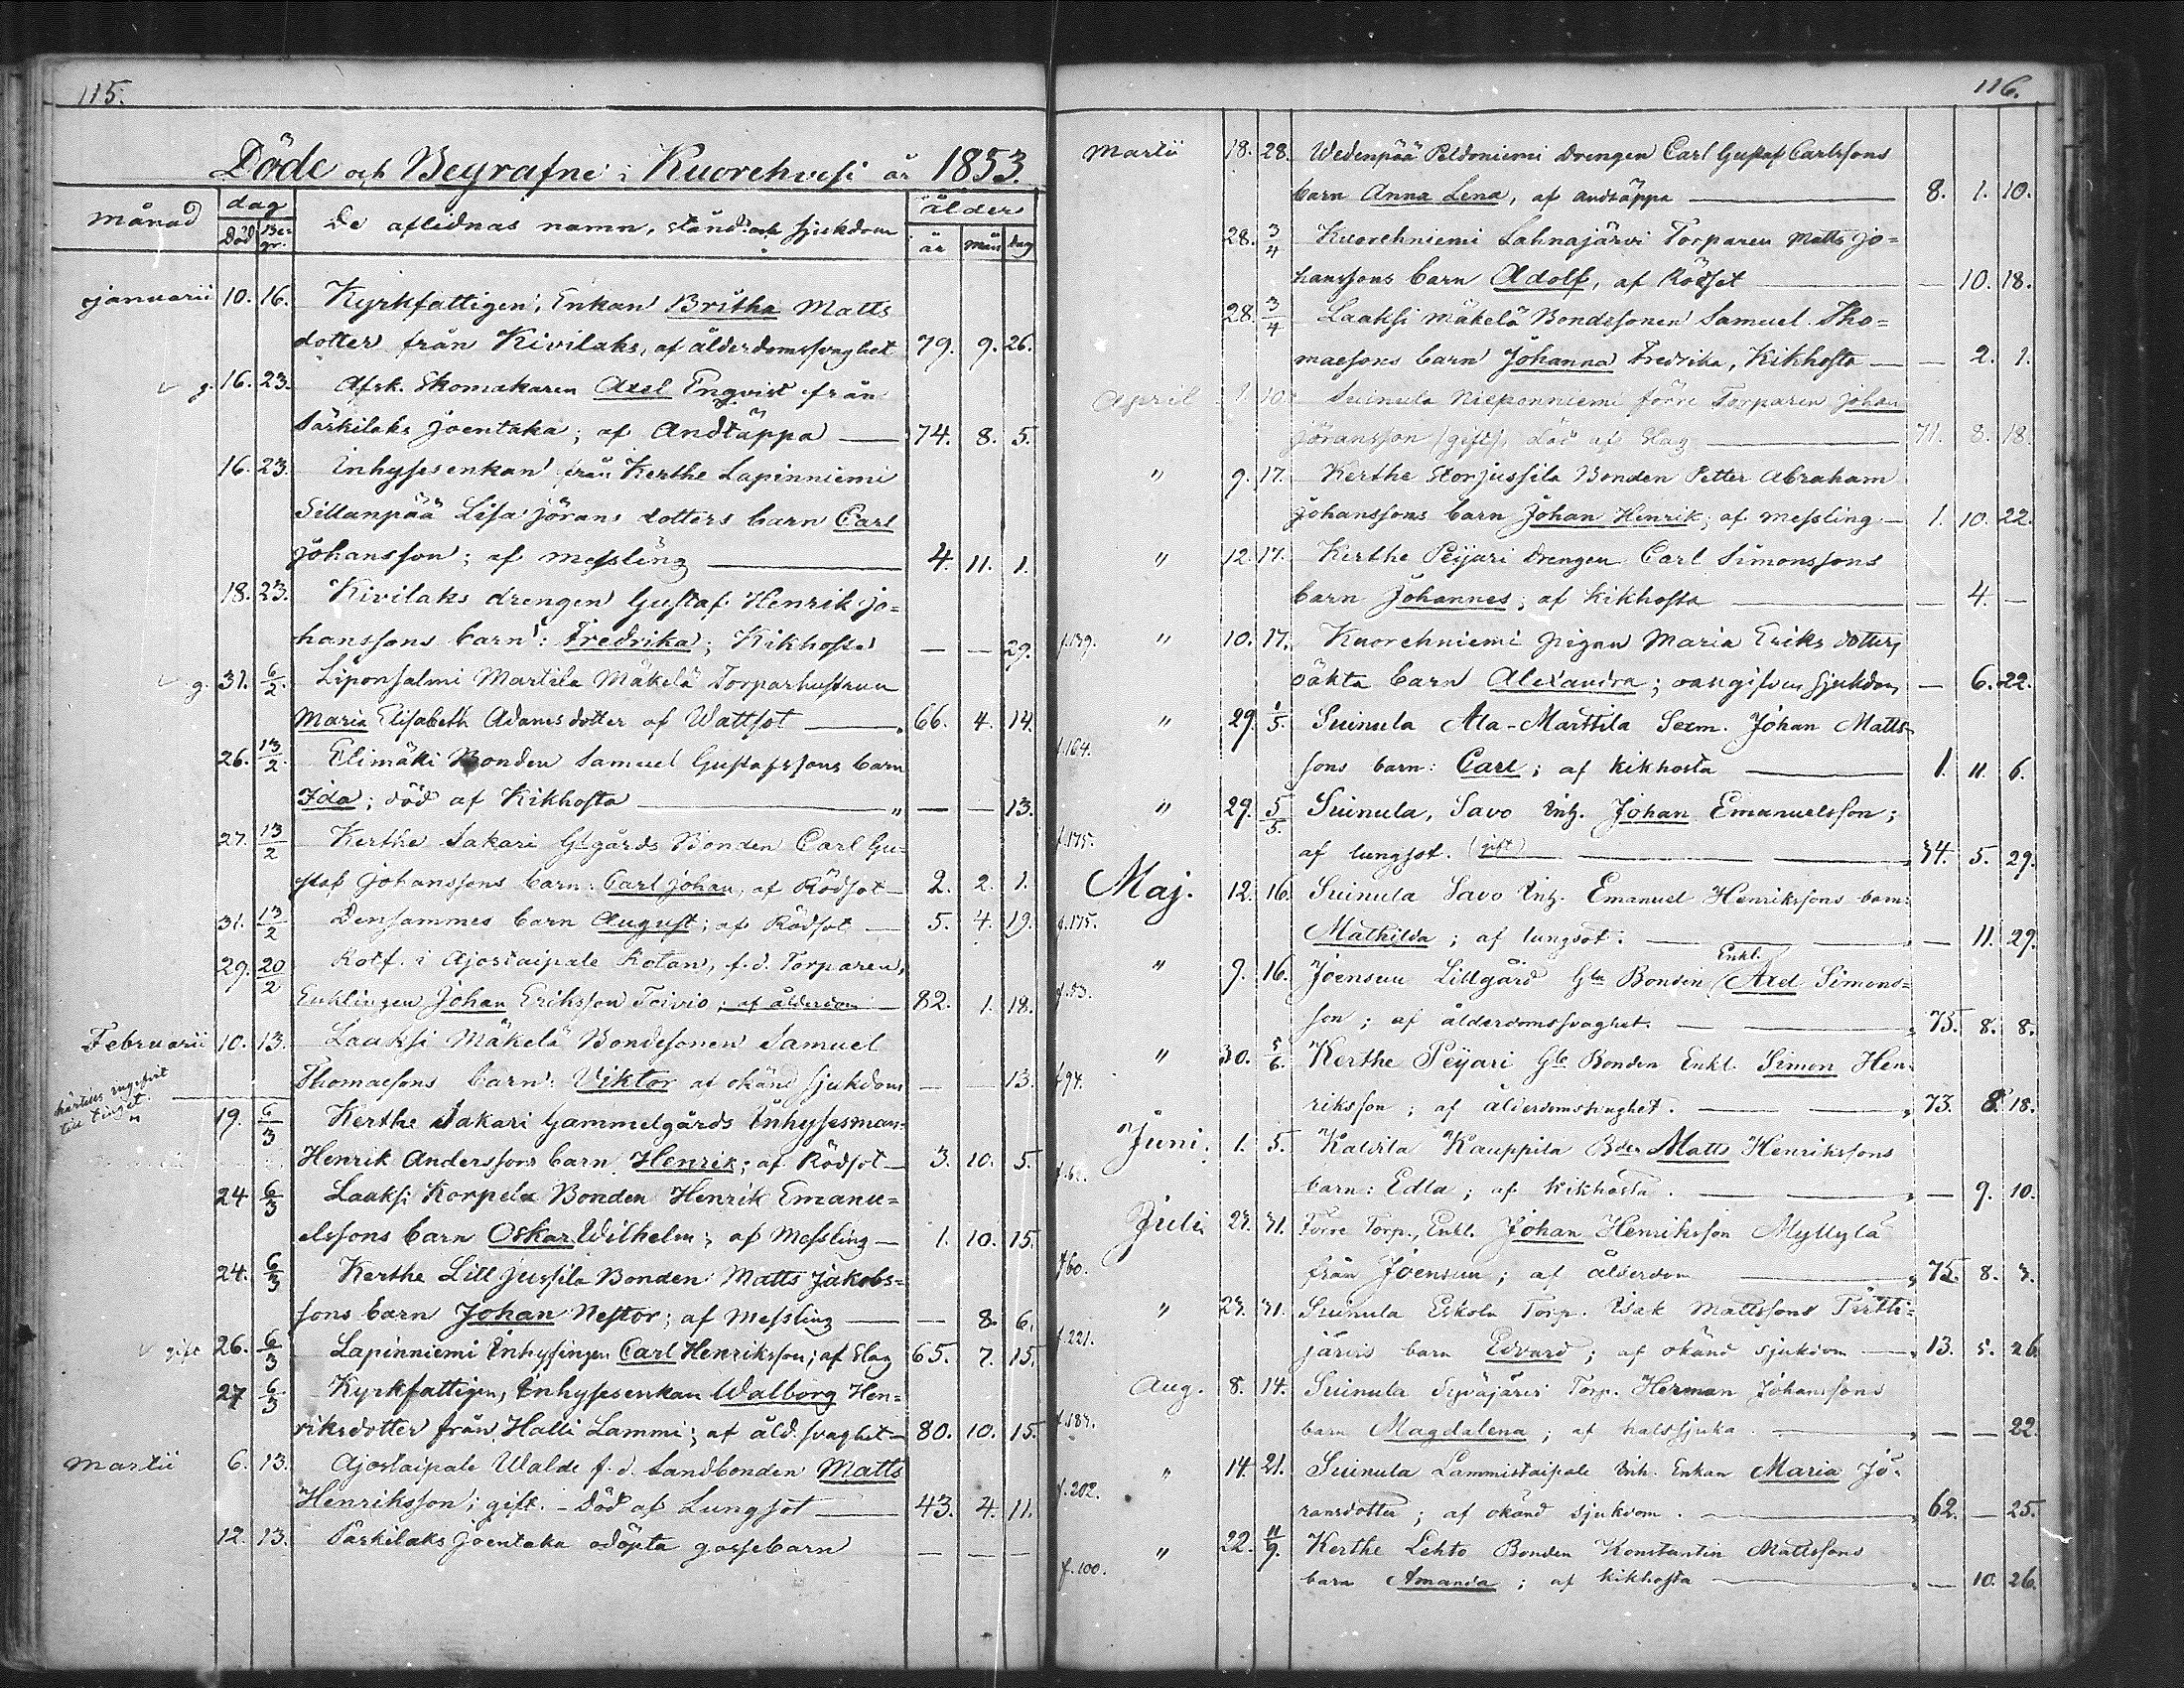 115.
Döde och Begrafne i Kuorehvesi år 1853.
månad dag De aflidnas namn, stånd och sjukdom ålder
Död Begr. år mån dag
januarii 10. 16. Kyrkfattigen, Enkan Britha Matts
dotter från Kivilaks, af ålderdomssvaghet 79. 9. 26.
g. 16. 23. Afsk. Skomakaren Axel Engvist från
Särkilaks Joentaka; af Andtäppa 74. 8. 5.
16. 23. Inhysesenkan från Kerthe Lapinniemi
Sillanpää Lisa Jörans dotters barn Carl
Johansson; af messling 4. 11. 1.
18. 23. Kivilaks drengen Gustaf Henrik Jo=
hanssons barn: Fredrika; Kikhosta — — 29.
g. 31. 6/2. Liponsalmi Martila Mäkelä Torparhustrun
Maria Elisabeth Adamsdotter af Wattsot 66. 4. 14.
26. 13/2. Elimäki Bonden Samuel Gustafssons barn
Ida; död af Kikhosta — — 13.
27. 13/2 Kerthe Sakari Glgårds Bonden Carl Gu=
staf Johanssons barn: Carl Johan, af Rödsot 2. 2. 1.
31. 13/2 Densammes barn August; af Rödsot 5. 4. 19.
29. 20/2 Rotf. i Ajostaipale Kotan, f.d. Torparen,
Enklingen Johan Eriksson Toivio; af ålderdom 82. 1. 18.
Februarii 10. 13. Laaksi Mäkelä Bondesonen Samuel
Thomaesons barn: Viktor af okänd sjukdom — — 13.
härtills
till tinget.
19. 6/3 Kerthe Sakari Gammelgårds Inhysesman
Henrik Anderssons barn Henrik; af Rödsot 3. 10. 5.
24 6/3 Laaksi Korpela Bonden Henrik Emanu=
elssons barn Oskar Wilhelm; af Messling 1. 10. 15.
24. 6/3 Kerthe Lill Jussila Bonden Matts Jakobs=
sons barn Johan Nestor; af Messling — 8. 6.
gift 26. 6/3 Lapinniemi Inhysingen Carl Henriksson; af Slag 65. 7. 15.
27 6/3 Kyrkfattigen, Inhysesenkan Walborg Hen=
riksdotter från Halli Lammi; af åld.svaghet 80. 10. 15.
Martii 6. 13. Ajostaipale Walde f.d. Landbonden Matts
Henriksson; gift. - Död af Lungsot 43. 4. 11.
12. 13. Särkilaks Joentaka odöpta gossebarn — — —
116.
Martii 18. 28. Wedenpää Peldoniemi Drengen Carl Gustaf Carlssons
barn Anna Lena, af andtäppa 8. 1. 10.
28. 3/4 Kuorehniemi Lahnajärvi Torparen Matts Jo=
hanssons barn Adolf, af Rödsot — 10. 18.
28. 3/4 Laaksi Mäkelä Bondesonen Samuel Tho=
maesons barn Johanna Fredrika, Kikhosta — 2. 1.
April 1. 10. Suinula Nieponniemi förre Torparen Johan
Jöransson (gift), död af Slag 71. 8. 18.
" 9. 17. Kerthe Storjussila Bonden Petter Abraham
Johanssons barn Johan Henrik; af messling 1. 10. 22.
" 12. 17. Kerthe Peijari Drengen Carl Simonssons
barn Johannes; af kikhosta — 4. —
f.139. " 10. 17. Kuorehniemi pigan Maria Eriks dotters
oäkta barn Alexandra; sjukdom — 6. 22.
" 29. 1/5. Suinula Ala-Marttila Sexm. Johan Matts-
f.164. sons barn: Carl; af kikhosta 1. 11. 6.
" 29. 5/5. Suinula, Savo Inh. Johan Emanuelsson;
f.175. af lungsot. (gift) 34. 5. 29.
Maj. 12. 16. Suinula Savo Inh. Emanuel Henrikssons barn:
f.175. Mathilda; af lungsot. — 11. 29.
" 9. 16. Joensuu Lillgård Gla Bonden Enkl. Axel Simons=
f.53. son; af ålderdomssvaghet. 75. 8. 8.
" 30. 5/6. Kerthe Peijari Gle Bonden Enkl. Simon Hen-
f.94. riksson; af ålderdomssvaghet. 73. 8. 18.
Juni. 1. 5. Kalvila Kauppila Bden Matts Henrikssons
barn: Edla; af kikhosta. — 9. 10.
Juli 23. 31. Förre Torp., Enkl. Johan Henriksson Myllylä
f.60. från Joensuu; af ålderdom 75. 8. 3.
" 23. 31. Suinula Eskola Torp. Isak Mattssons Pirtti-
f.221. järvis barn Edvard; af okänd sjukdom 13. 5. 26.
Aug. 8. 14. Suinula Syväjärvi Torp. Herman Johanssons
f.183. barn Magdalena; af halssjuka. — — 22.
" 14. 21. Suinula Lammistaipale Inh. Enkan Maria Jö-
f.202. ransdotter; af okänd sjukdom. 62. — 25.
" 22. 11/9. Kerthe Lehto Bonden Konstantin Mattssons
f.100. barn Amanda; af kikhosta — 10. 26.